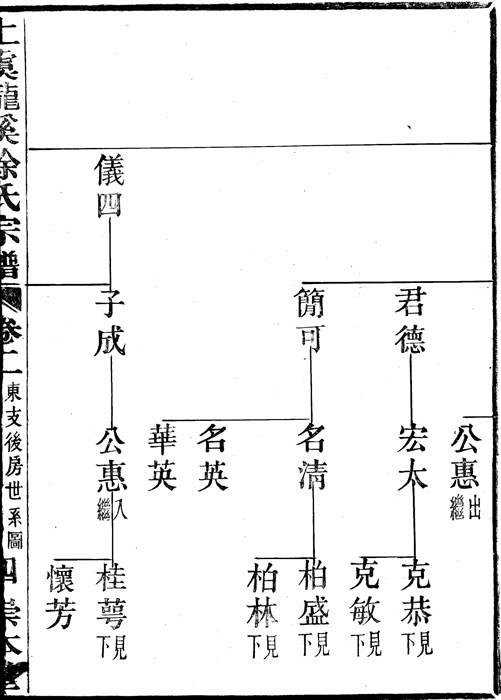 公惠出繼
君德
宏太
克恭見下
克敏見下
簡可
名清
名英
華英
柏盛見下
柏林見下
儀四
子成
公惠入繼
桂萼見下
懷芳
上虞龍溪徐氏宗譜
卷二
東支後房世系圖
四